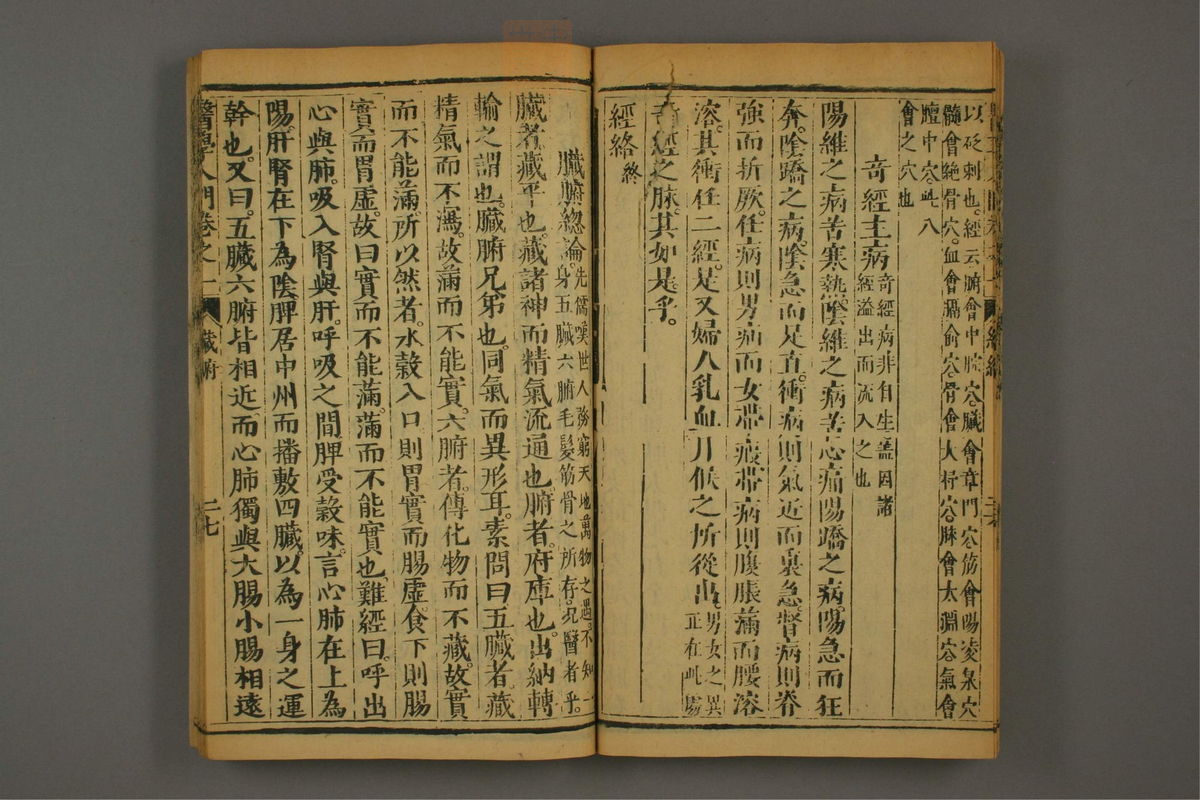 以砭刺也經云腑會中脘穴臟會章門穴筋會陽凌泉穴
髓會絕骨穴血會膈俞穴骨會大杼穴脉會太淵穴氣會
膻中穴此八
會之穴也
奇經主病奇經病非自生盖因諸
經溢出而流入之也
陽維之病苦寒熱陰維之病苦心痛陽蹻之病陽急而狂
奔陰蹻之病陰急而足直衝病則氣逆而裏急督病則脊
強而折厥任病則男疝而女帶瘕帶病則腹脹滿而腰溶
溶其衝任二經是又婦人乳血月候之所從出男女之異
正在此處
奇經之脉其如是乎
經絡終
臟腑總論先儒嘆世人務窮天地萬物之遇不知一
身五臟六腑毛髮筋骨之所存况醫者乎
臟者藏平也藏諸神而精氣流通也腑者府庫也出納轉
輸之謂也臟腑兄弟也同氣而異形耳素問曰五臟者藏
精氣而不瀉故滿而不能實六腑者傳化物而不藏故實
而不能滿所以然者水穀入口則胃實而腸虛食下則腸
實而胃虛故曰實而不能滿滿而不能實也難經曰呼出
心與肺吸入腎與肝呼吸之間脾受穀味言心肺在上為
陽肝腎在下為陰脾居中州而播敷四臟以為一身之運
幹也又曰五臟六腑皆相近而心肺獨與大腸小腸相遠
醫學入門卷之一
臟腑
二七